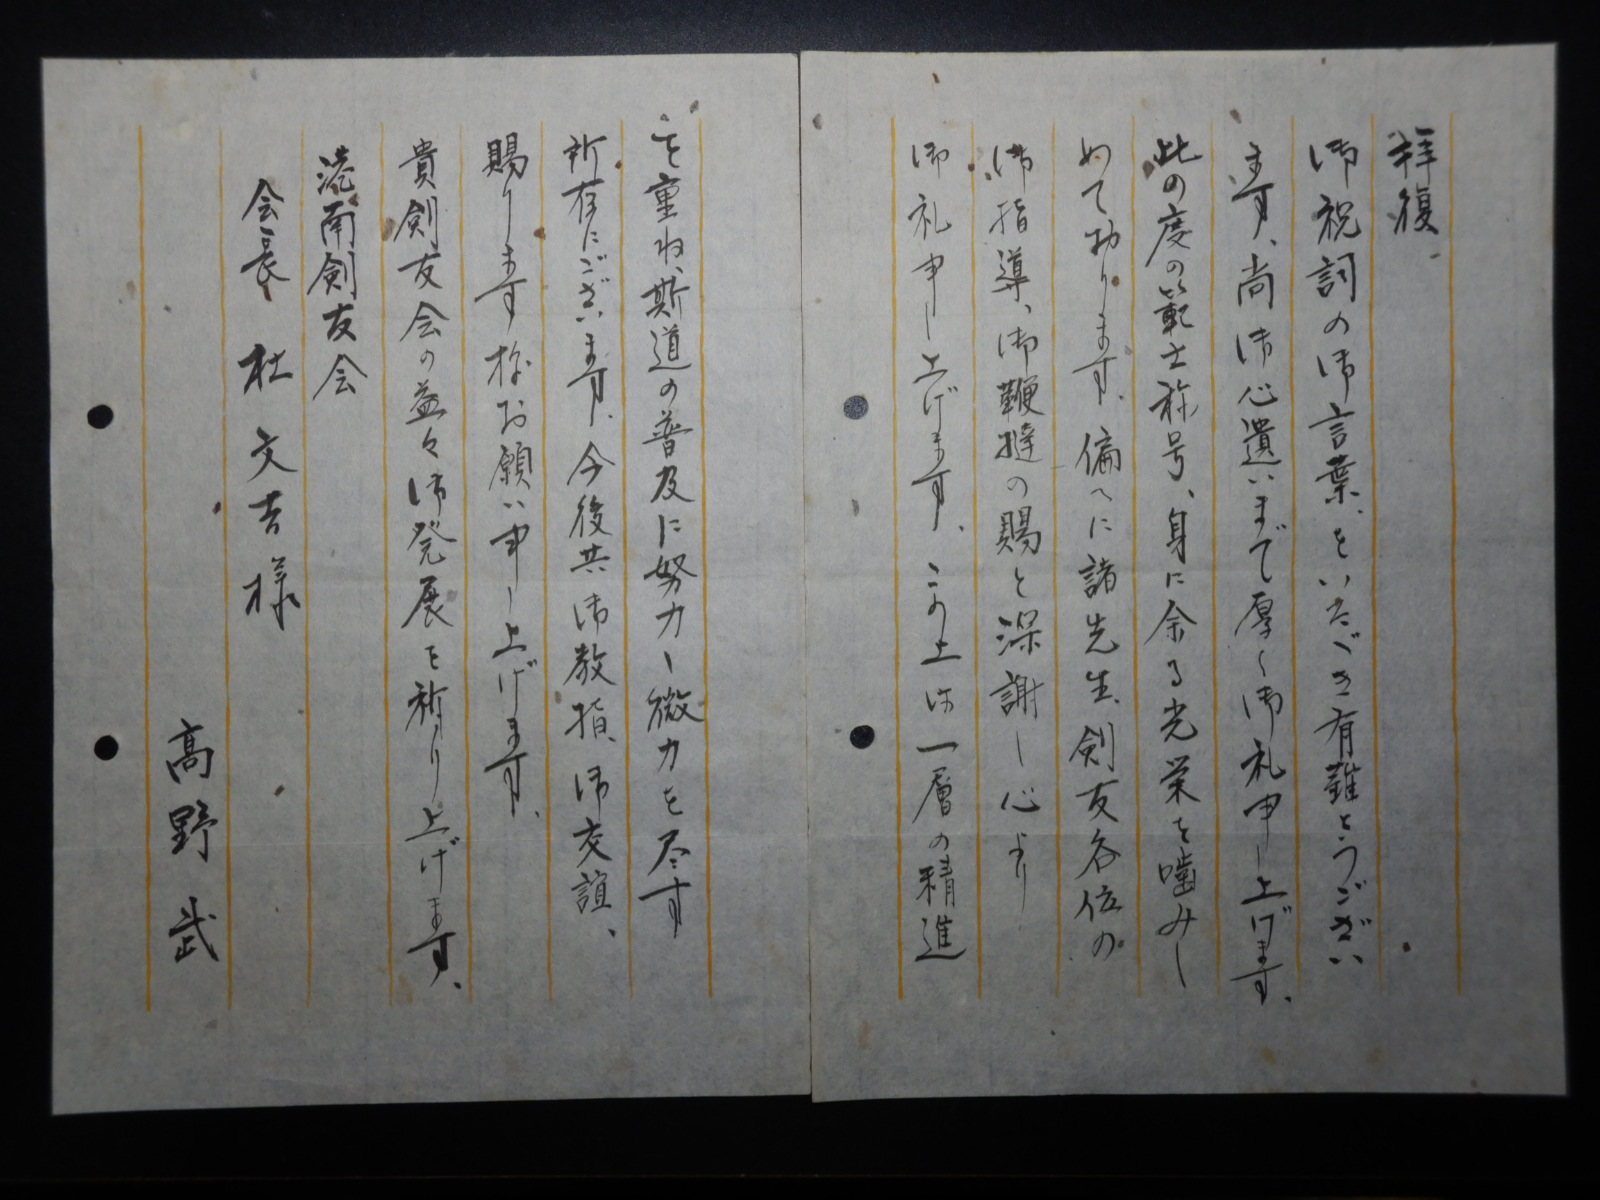 拝復
御祝詞の御言葉をいたゞき有難とうござい
ます、尚御心遣いまで厚く御礼申し上げます、
此の度の範士称号、身に余る光栄を噛みし
めて居ります、偏へに諸先生、剣友各位の
御指導、御鞭撻の賜と深謝し心より
御礼申し上げます、この上は一層の精進
を重ね、斯道の普及に努力し微力を尽す
所存にございます、今後共御教指、御交誼、
賜ります様お願い申し上げます、
貴剣友会の益々御発展を祈り上げます、
港南剣友会
会長 杜文吉様
高野武